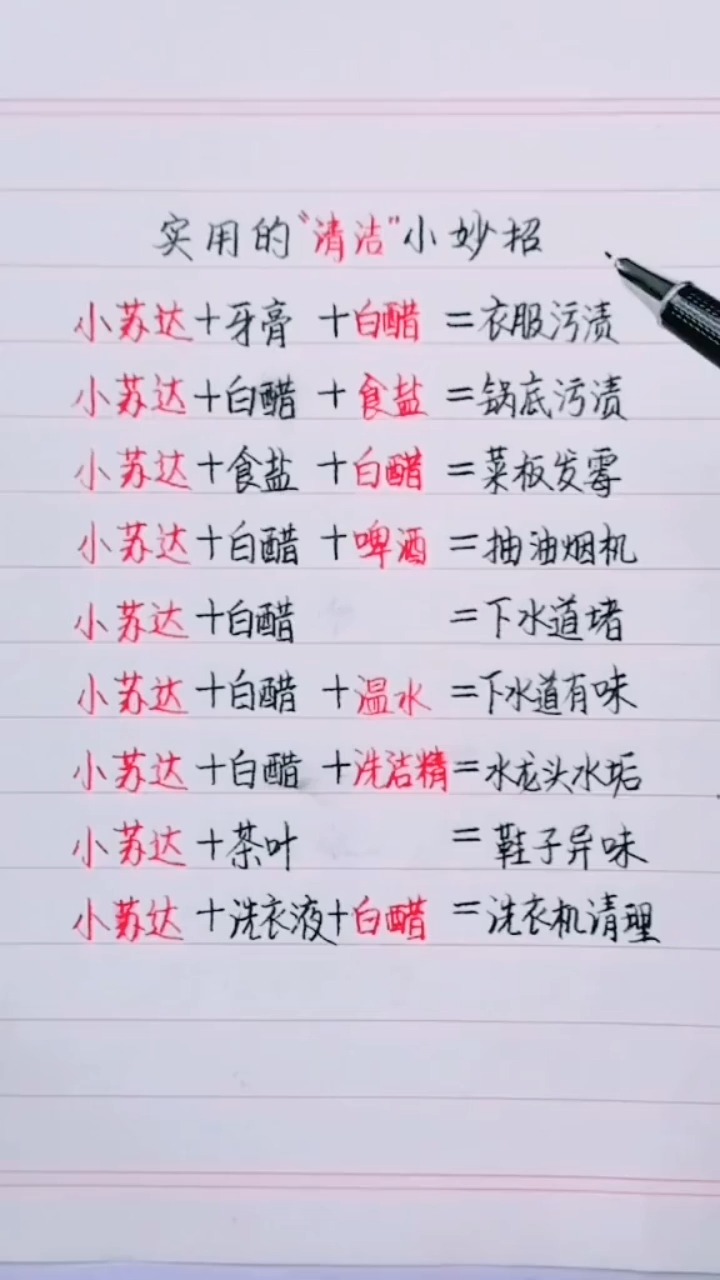 实用的“清洁”小妙招
小苏达+牙膏+白醋=衣服污渍
小苏达+白醋+食盐=锅底污渍
小苏达+食盐+白醋=菜板发霉
小苏达+白醋+啤酒=抽油烟机
小苏达+白醋=下水道堵
小苏达+白醋+温水=下水道有味
小苏达+白醋+洗洁精=水龙头水垢
小苏达+茶叶=鞋子异味
小苏达+洗衣液+白醋=洗衣机清理